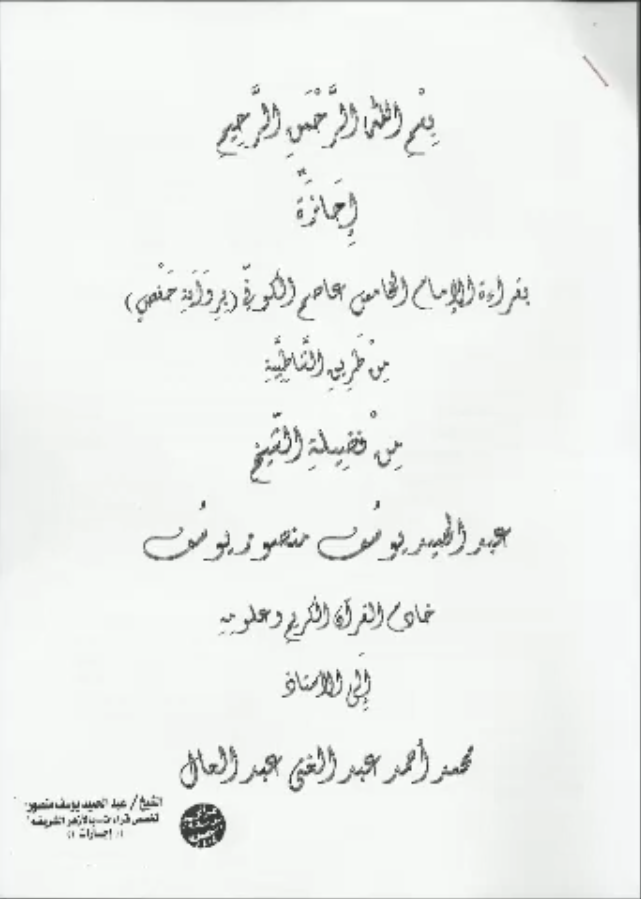 بِسْمِ اللهِ الرَّحْمَنِ الرَّحِيمِ
إِجَازَةٌ
بقراءة الإمام الخامس عاصم الكوفيِّ (بِرِوَايَةِ حَفْصٍ)
مِنْ طَرِيقِ الشَّاطِبِيَّةِ
مِنْ فَضِيلَةِ الشَّيْخِ
عبد الحميد يوسُف منصور يوسُف
خادم القرآن الكريم وعلومِهِ
إِلَى الأستاذ
محمد أحمد عبد الغني عبد العال
الشيخ/ عبد الحميد يوسف منصور
تخصص قراءات بالأزهر الشريف